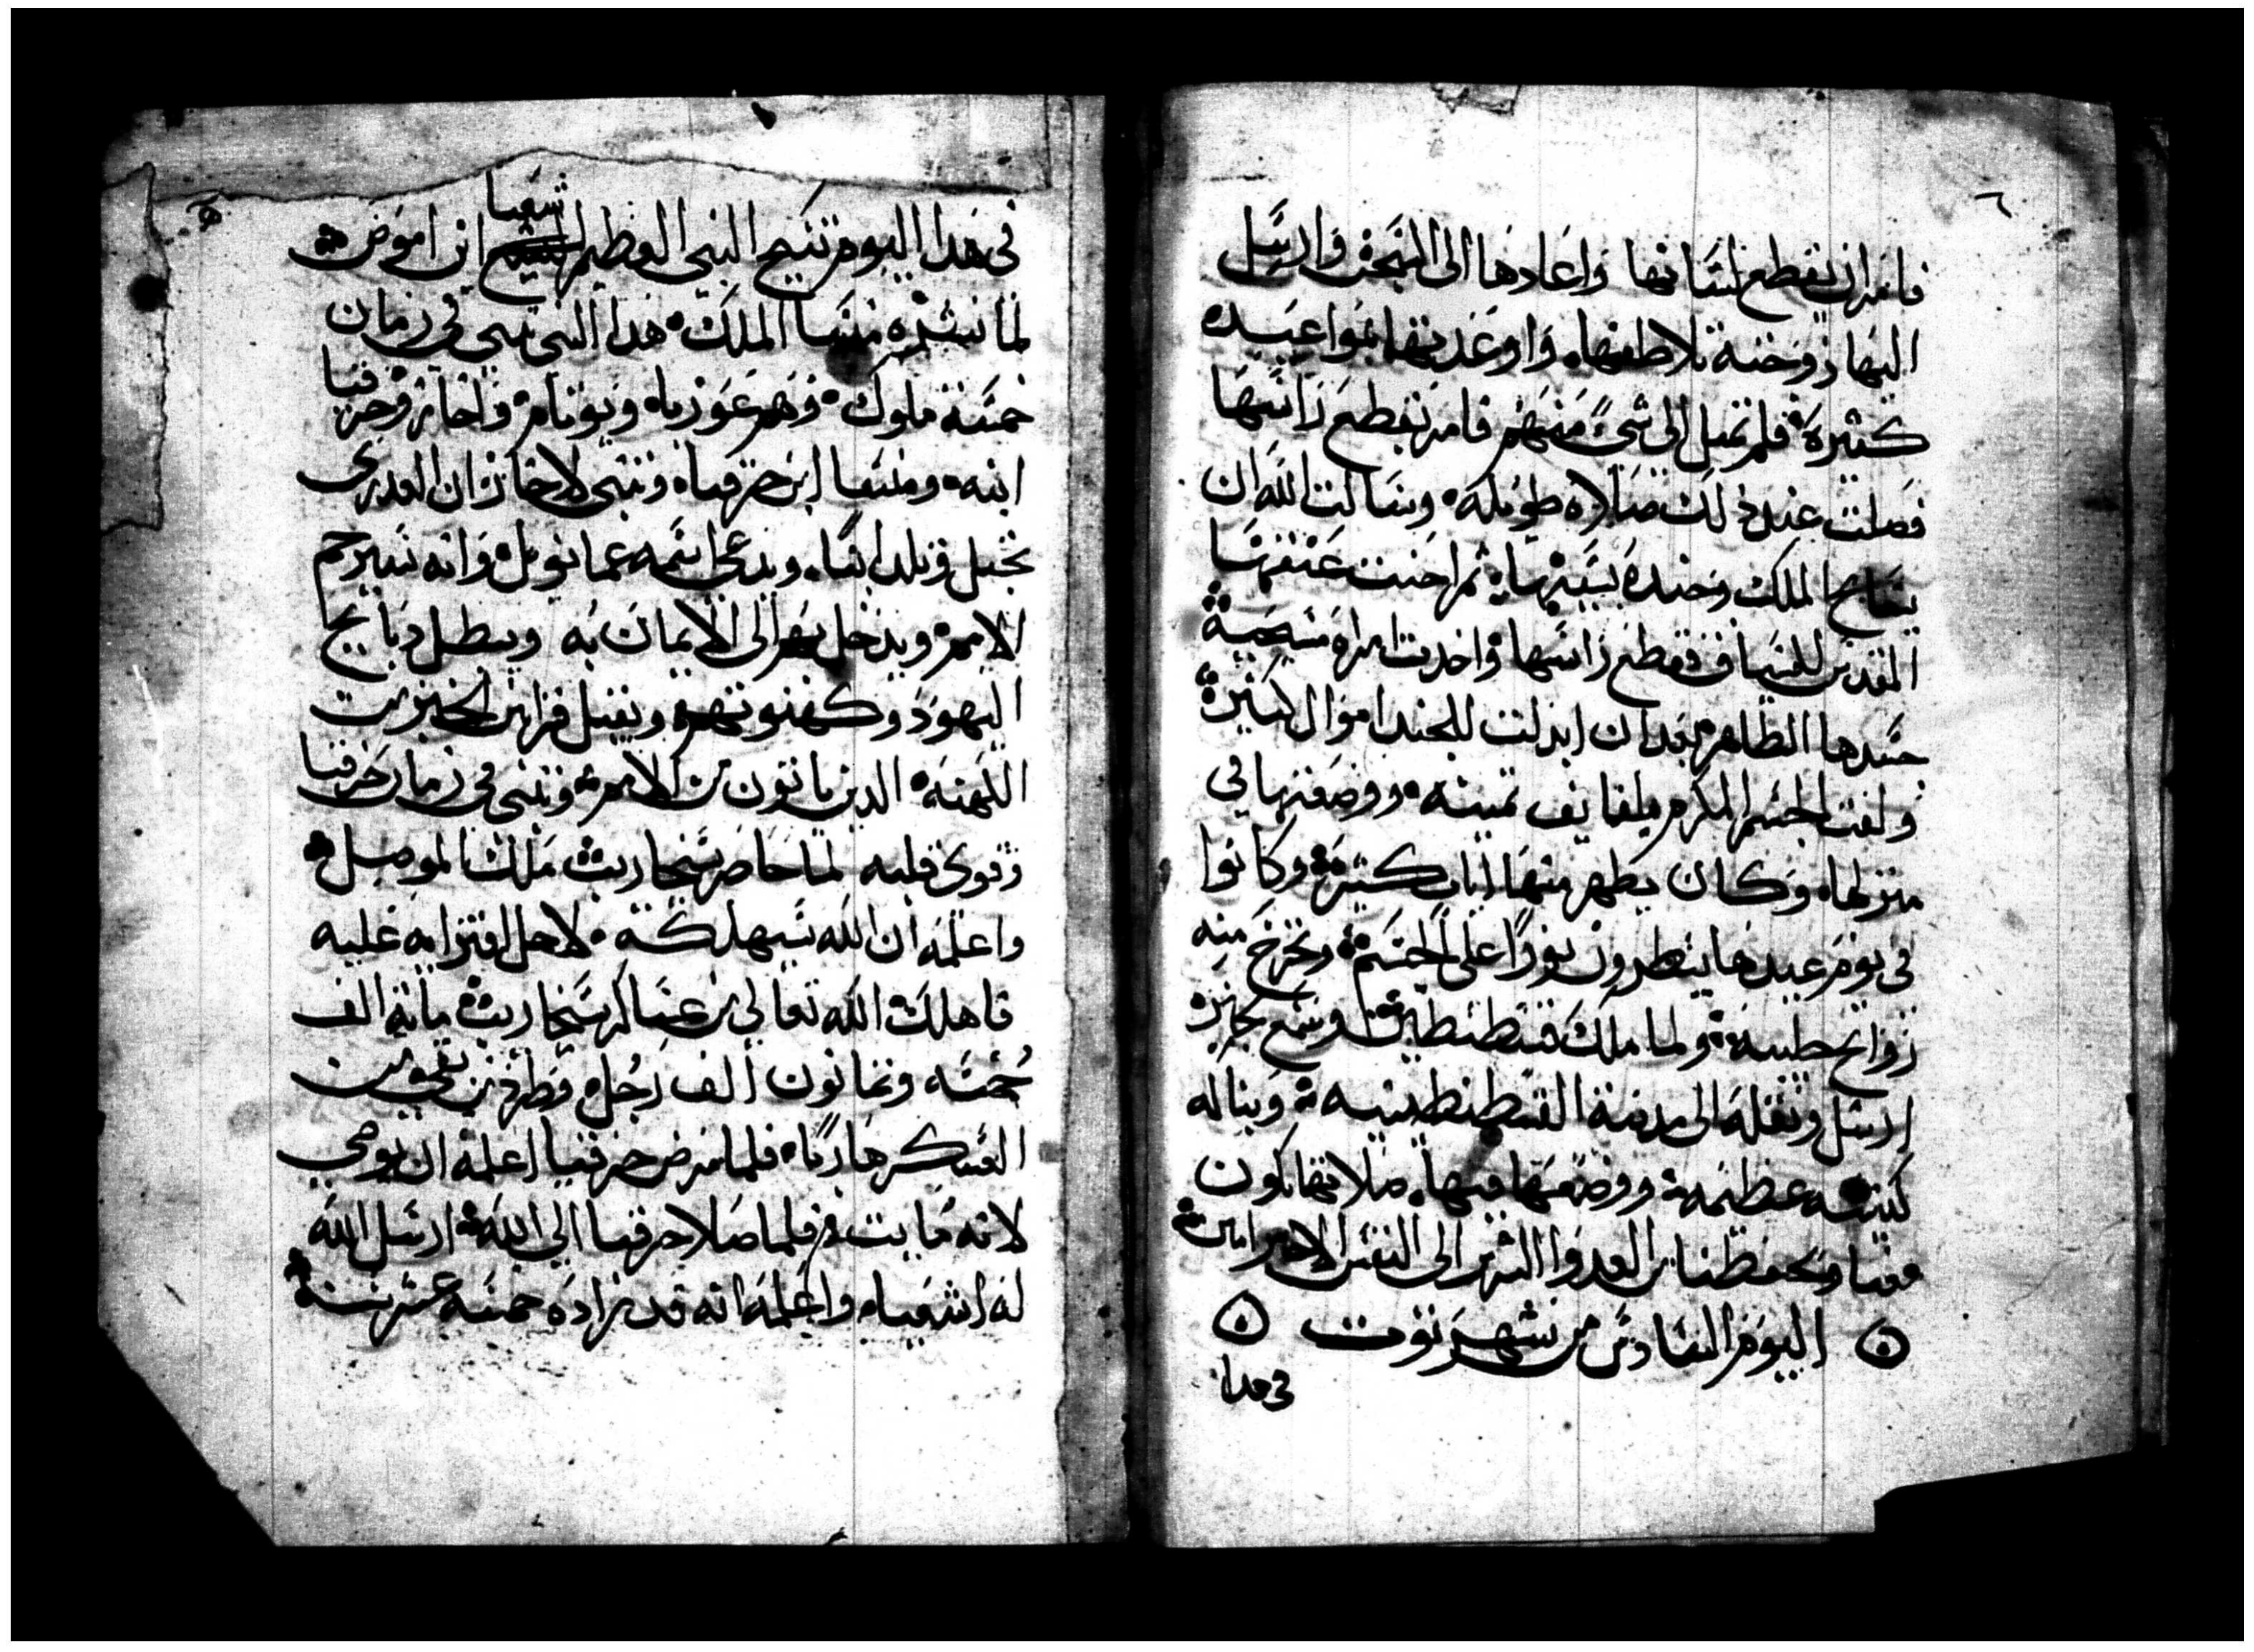 ٦
فامر ان يقطع لسانها واعادها الى السجن وارسل
اليها زوجته تلاطفها، واوعدتها بمواعيده
كثيره فلم تميل الى شئ منهم فامر بقطع راسها
فصلت عند ذلك صلاه طويله وسالت الله ان
يسامح الملك وجنده بسببها ثم احنت عنقها
المقدس للسياف فقطع راسها واخدت امراه مسيحية
جسدها الطاهر بعد ان ابدلت للجند اموال كثيرة
ولفت الجسم المكرم بلفايف تمينه ووضعتها في
منزلها، وكان يظهر منها ايات كثيرة وكانوا
في يوم عيدها ينظرون نورًا على الجسم وتخرج منه
روايح طيبه ولما ملك قسطنطين وسمع بخبره
ارسل ونقله الى مدينة القسطنطينيه وبنا له
كنيسه عظيمه ووضعها فيها، صلاتها تكون
معنا وتحفظنا من العدوا الشرير الى النفس الاخير امين
اليوم السادس من شهر توت
في هدا
في هدا اليوم تنيح النبي العظيم شعيا ابن اموص
لما نشره منسا الملك هدا النبي تنبي في زمان
خمسة ملوك وهم عوزياه ويوتام واحاز وحزقيا
ابنه ومنسا ابن حزقياه وتنبى لاحاز ان العدرى
تحبل وتلد ابنًا، ويدعي اسمه عمانويل وانه سيرحم
الامم ويدخل بهم الى الايمان به ويبطل دبايح
اليهود وكهنوتهم ويقبل قرابين الخبز من
الكهنه الدين ياتون من الامم وتنبى في زمان حزقيا
وقوى قلبه لما حاصر سنحاريب ملك الموصل
واعلمه ان الله سيهلكه لاجل افترايه عليه
فاهلك الله تعالي من عساكر سنحاريب مائة الف
خمسه وتمانون الف رجل، وطرد من بقي من
العسكر هاربًا، فلما مرض حزقيا اعلمه ان يوصي
لانه مايت فلما صلا حزقيا الي الله ارسل الله
له اشعياه واعلمه انه قد زاده خمسه عشر سنه